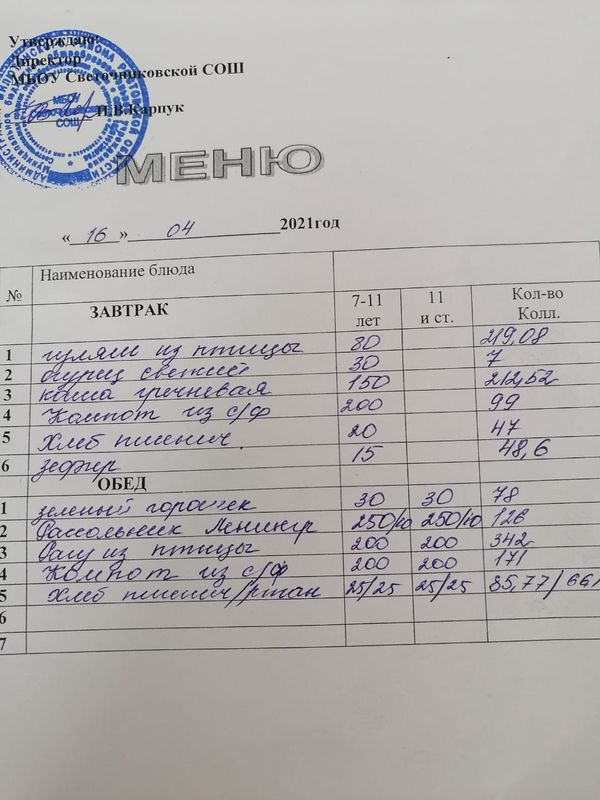 Утверждаю:
Директор
МБОУ Светочниковской СОШ
П.В.Карпук
МБОУ
СОШ
МЕНЮ
«16» 04 2021год
№ Наименование блюда
ЗАВТРАК 7-11 лет 11 и ст. Кол-во Колл.
1 гуляш из птицы 80 219,08
2 огурец свежий 30 7
3 каша гречневая 150 212,52
4 Компот из с/ф 200 99
5 Хлеб пшенич. 20 47
6 зефир 15 48,6
ОБЕД
1 зеленый горошек 30 30 78
2 Рассольник Ленингр 250/10 250/10 126
3 Рагу из птицы 200 200 342
4 Компот из с/ф 200 200 171
5 Хлеб пшенич/ржан 25/25 25/25 85,77/66
6
7